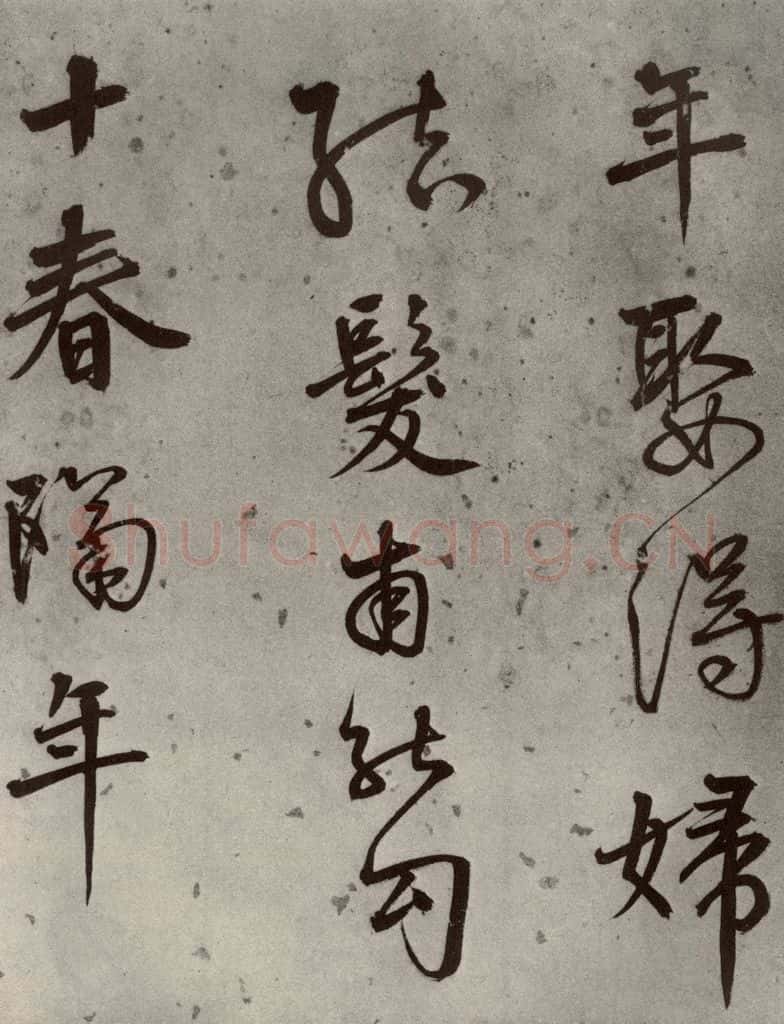 年娶得婦
結髮甫能勾
十春隔年
Shufawang.CN